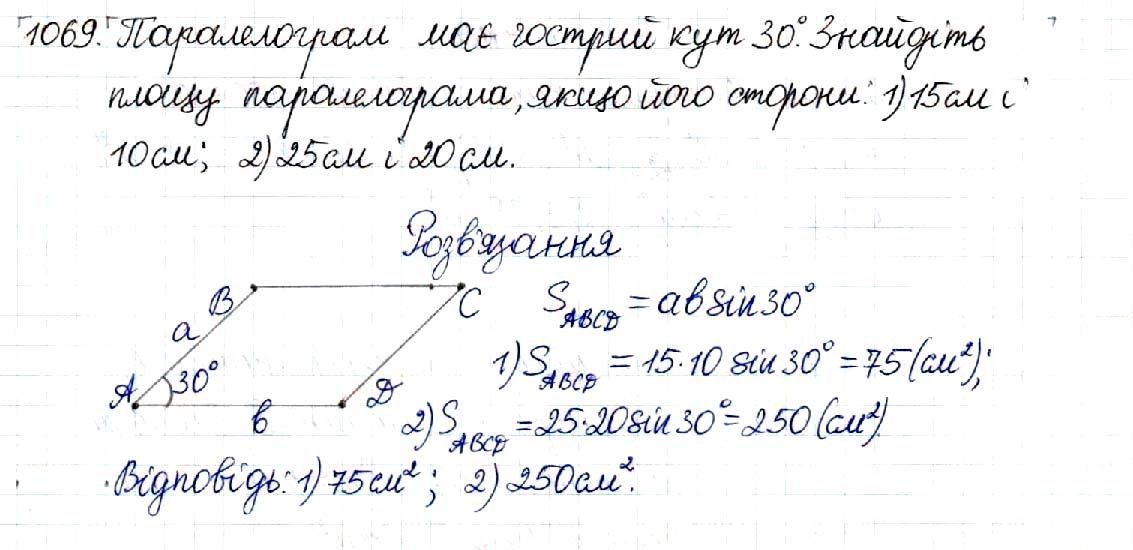 1069. Паралелограм має гострий кут 30°. Знайдіть
площу паралелограма, якщо його сторони: 1) 15 см і
10 см; 2) 25 см і 20 см.
Розв'язання
B
C
a
A
30°
D
b
S_ABCD = ab sin 30°
1) S_ABCD = 15·10 sin 30° = 75 (см²);
2) S_ABCD = 25·20 sin 30° = 250 (см²)
Відповідь: 1) 75 см²; 2) 250 см².